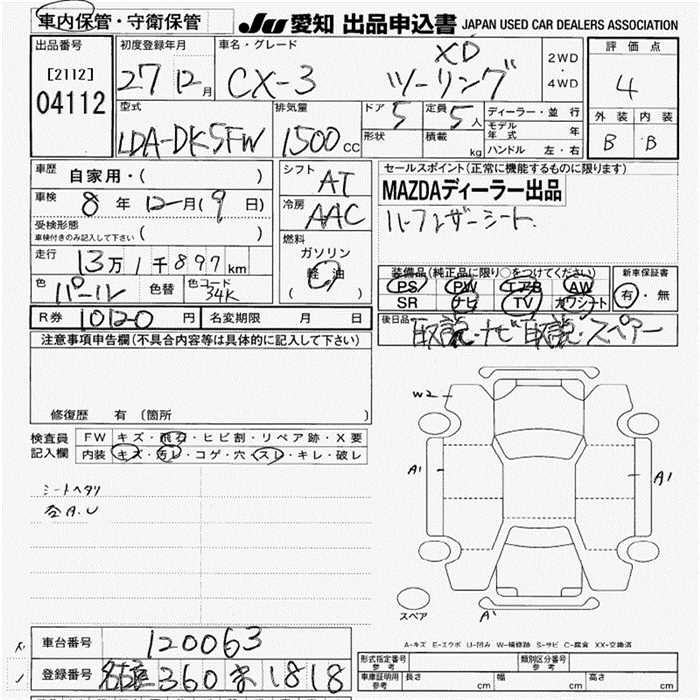 車内保管・守衛保管
JU 愛知 出品申込書 JAPAN USED CAR DEALERS ASSOCIATION
出品番号
[2112]
04112
初度登録年月
27 12月
車名・グレード
CX-3 XD ツーリング
2WD
・
4WD
評価点
4
外装 内装
B・B
型式
LDA-DK5FW
排気量
1500cc
ドア 5
形状
定員 5人
積載 kg
ディーラー・並行
モデル年式 年
ハンドル 左・右
車歴 自家用・( )
車検 8年 12月(9日)
受検形態
車検付きのみ記入して下さい ( )
走行 13万1千897km
色 パール 色替 色コード 34K
シフト AT
冷房 AAC
燃料
ガソリン
軽油
( )
セールスポイント(正常に機能するものに限ります)
MAZDAディーラー出品
ハーフレザーシート.
装備品(純正品に限り○をつけてください)
PS PW エアB AW
SR ナビ TV カワシート
新車保証書
有・無
後日品
取説・ナビ取説・スペアー
R券 10120円 名変期限 月 日
注意事項申告欄(不具合内容等は具体的に記入して下さい)
修復歴 有(箇所 )
検査員記入欄
FW キズ・飛石・ヒビ割・リペア跡・X要
内装 キズ・汚レ・コゲ・穴・スレ・キレ・破レ
シートヘタリ
全A.U
W2
A1
A1
A1
スペア
A-キズ E-エクボ U-凹み W-補修跡 S-サビ C-腐食 XX-交換済
車台番号 120063
登録番号 名古屋 360 ま 1818
形式指定番号 参考
類別区分番号 参考
車庫証明用 参考 長さ cm 幅 cm 高さ cm